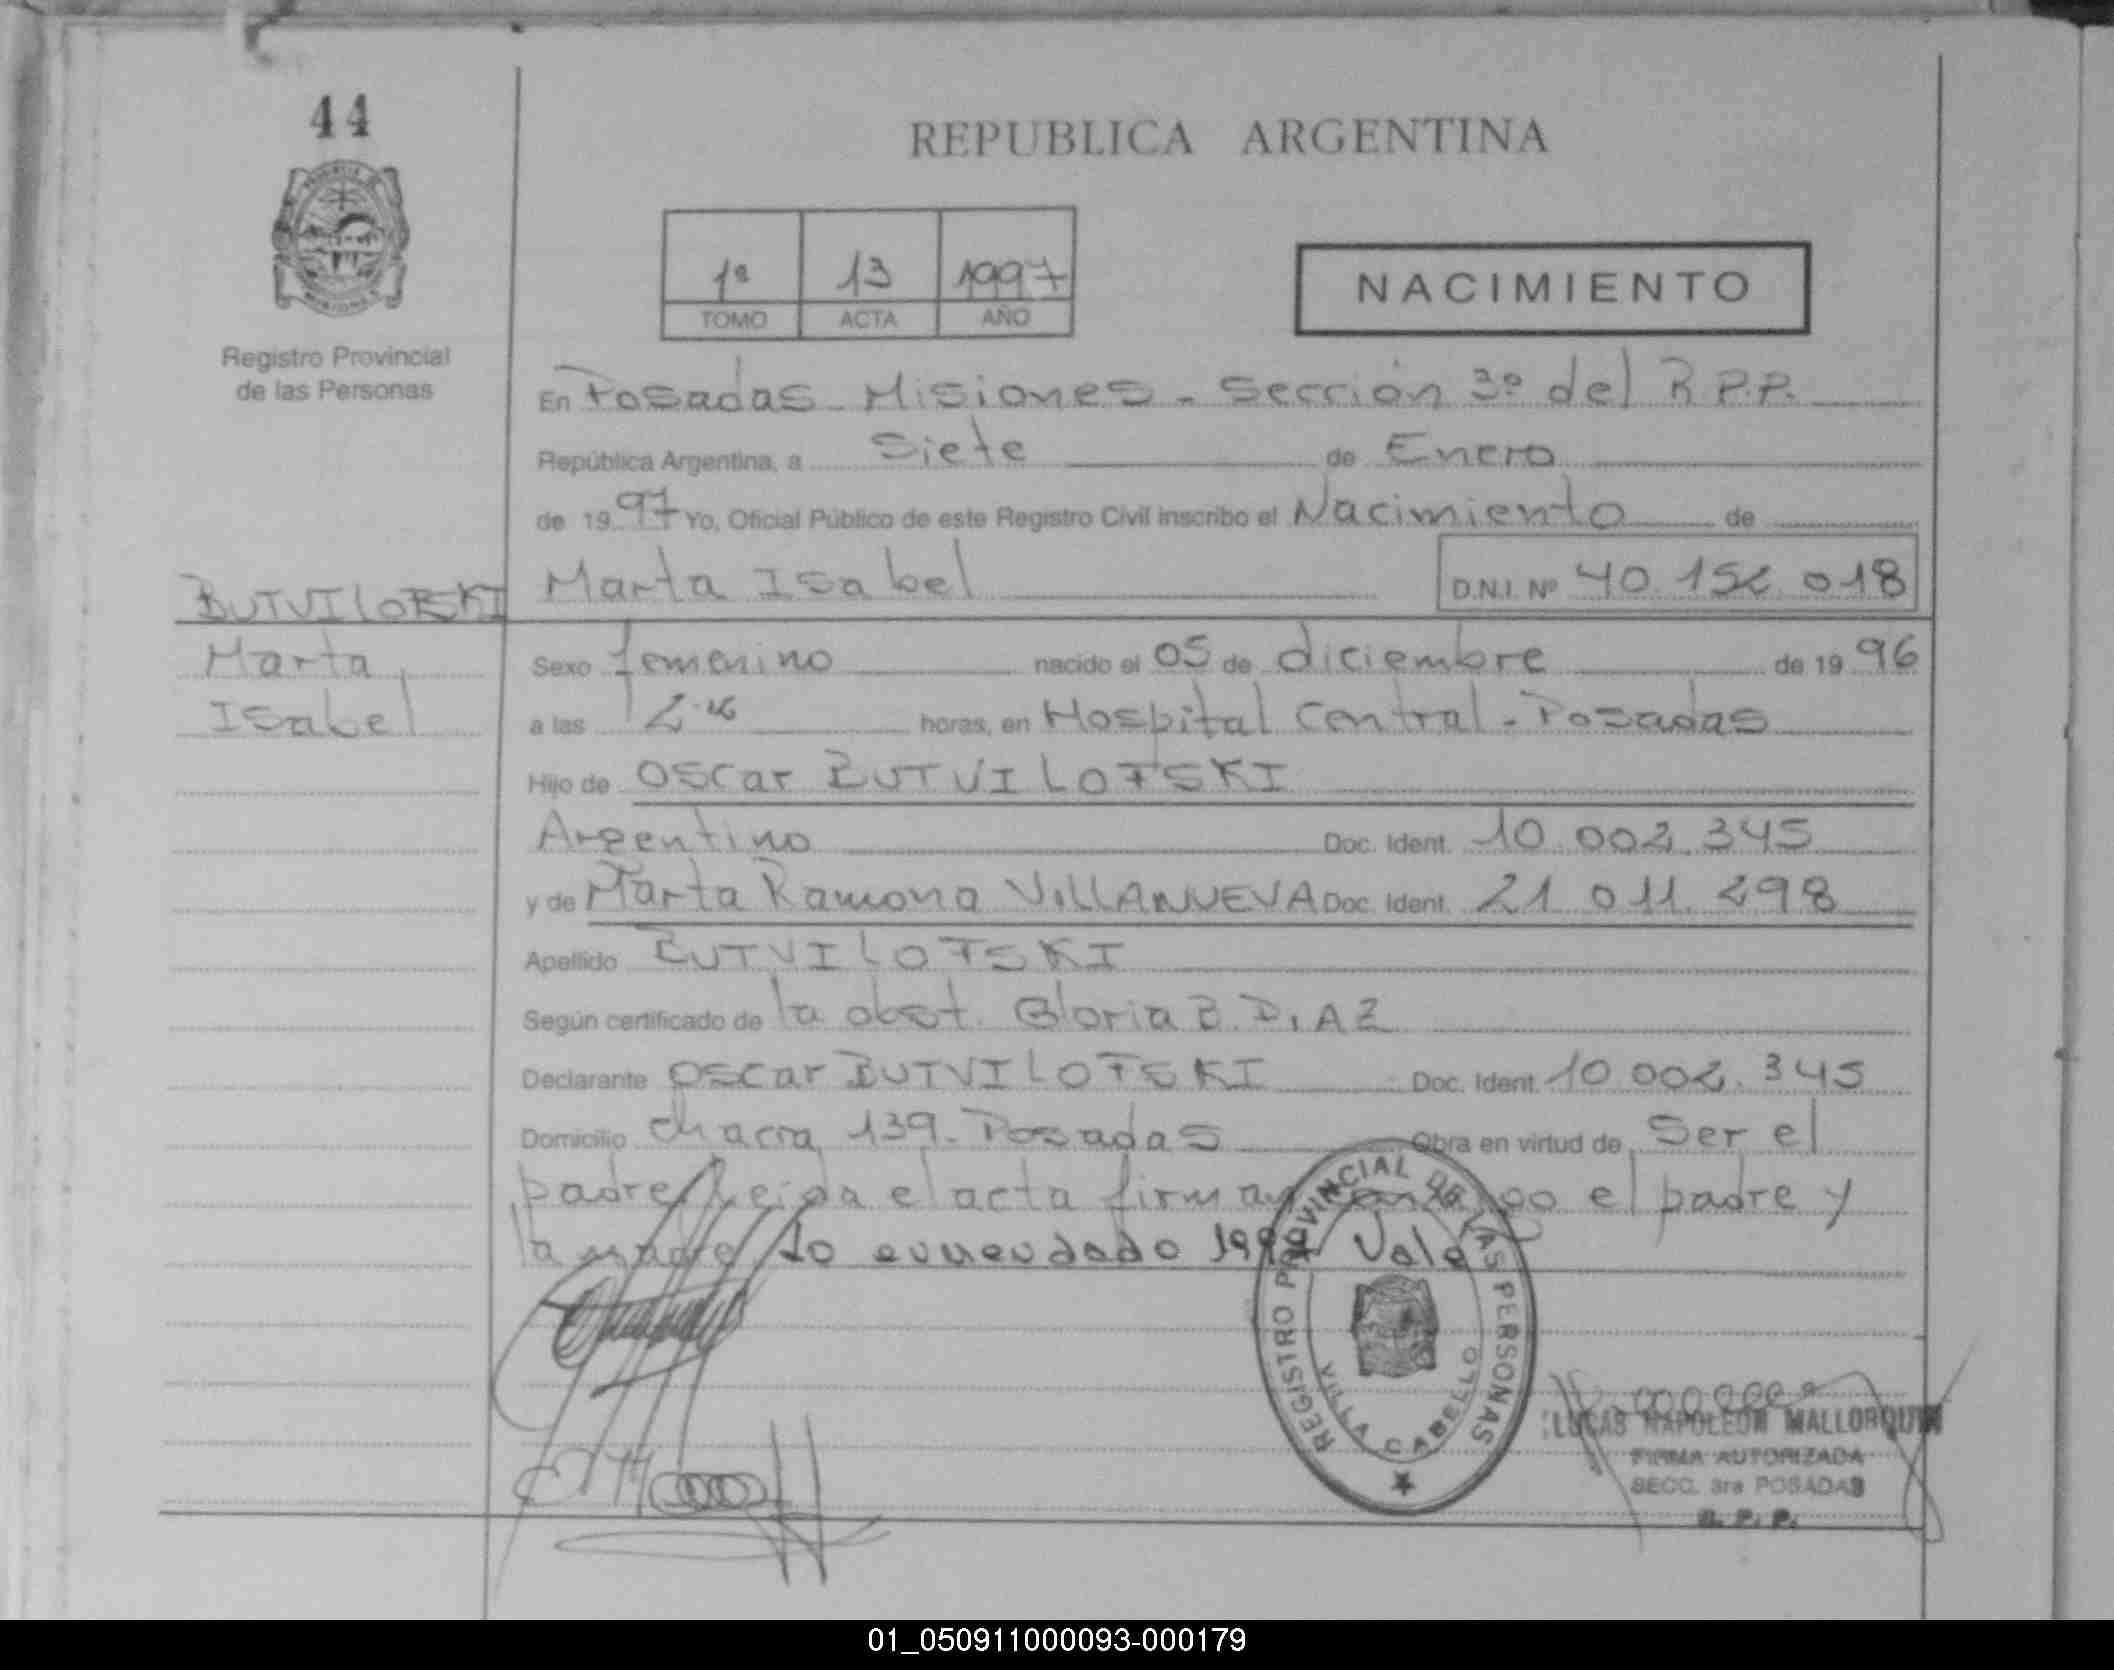 44
REPUBLICA ARGENTINA
1º 13 1997
TOMO ACTA AÑO
NACIMIENTO
Registro Provincial
de las Personas
En Posadas Misiones - Sección 3º del R.P.P.
República Argentina, a Siete de Enero
de 1997 Yo, Oficial Público de este Registro Civil inscribo el Nacimiento de
Marta Isabel D.N.I. Nº 40.152.018
BUTVILOFSKI
Marta
Isabel
Sexo femenino nacido el 05 de diciembre de 1996
a las horas, en Hospital Central - Posadas
Hijo de Oscar BUTVILOFSKI
Argentino Doc. Ident. 10.002.345
y de Marta Ramona VILLANUEVA Doc. Ident. 21.011.298
Apellido BUTVILOFSKI
Según certificado de la obst. Gloria B. DIAZ
Declarante Oscar BUTVILOFSKI Doc. Ident. 10.002.345
Domicilio Chacra 139 - Posadas Obra en virtud de Ser el
padre Leida el acta firman conmigo el padre y
la madre lo enmendado 1997 Vale
REGISTRO PROVINCIAL DE LAS PERSONAS
VILLA CABELLO
LUCAS NAPOLEON MALLORQUIN
FIRMA AUTORIZADA
SECC. 3ra POSADAS
R. P. P.
01_050911000093-000179